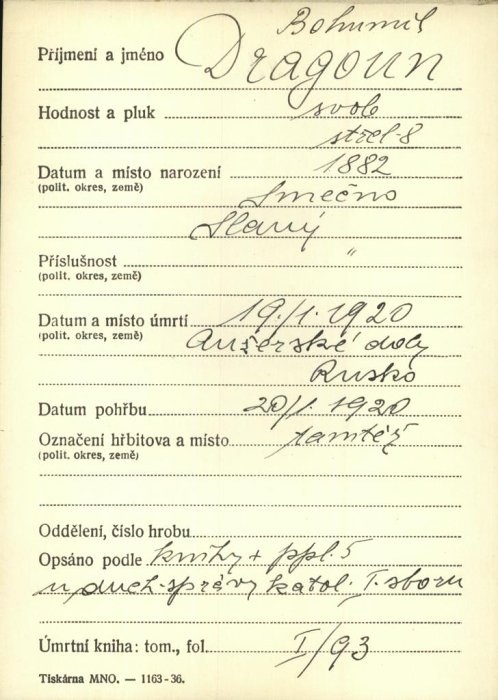 Bohumil
Příjmení a jméno Dragoun
Hodnost a pluk svob
střel-8
Datum a místo narození 1882
(polit. okres, země) Smečno
Slaný
Příslušnost "
(polit. okres, země)
Datum a místo úmrtí 19./1. 1920
(polit. okres, země) Anžerské doly
Rusko
Datum pohřbu 20/1. 1920
Označení hřbitova a místo tamtéž
(polit. okres, země)
Oddělení, číslo hrobu
Opsáno podle knihy + ppl. 5
u duch. správy katol. I. sboru
Úmrtní kniha: tom., fol. I/93
Tiskárna MNO. — 1163-36.